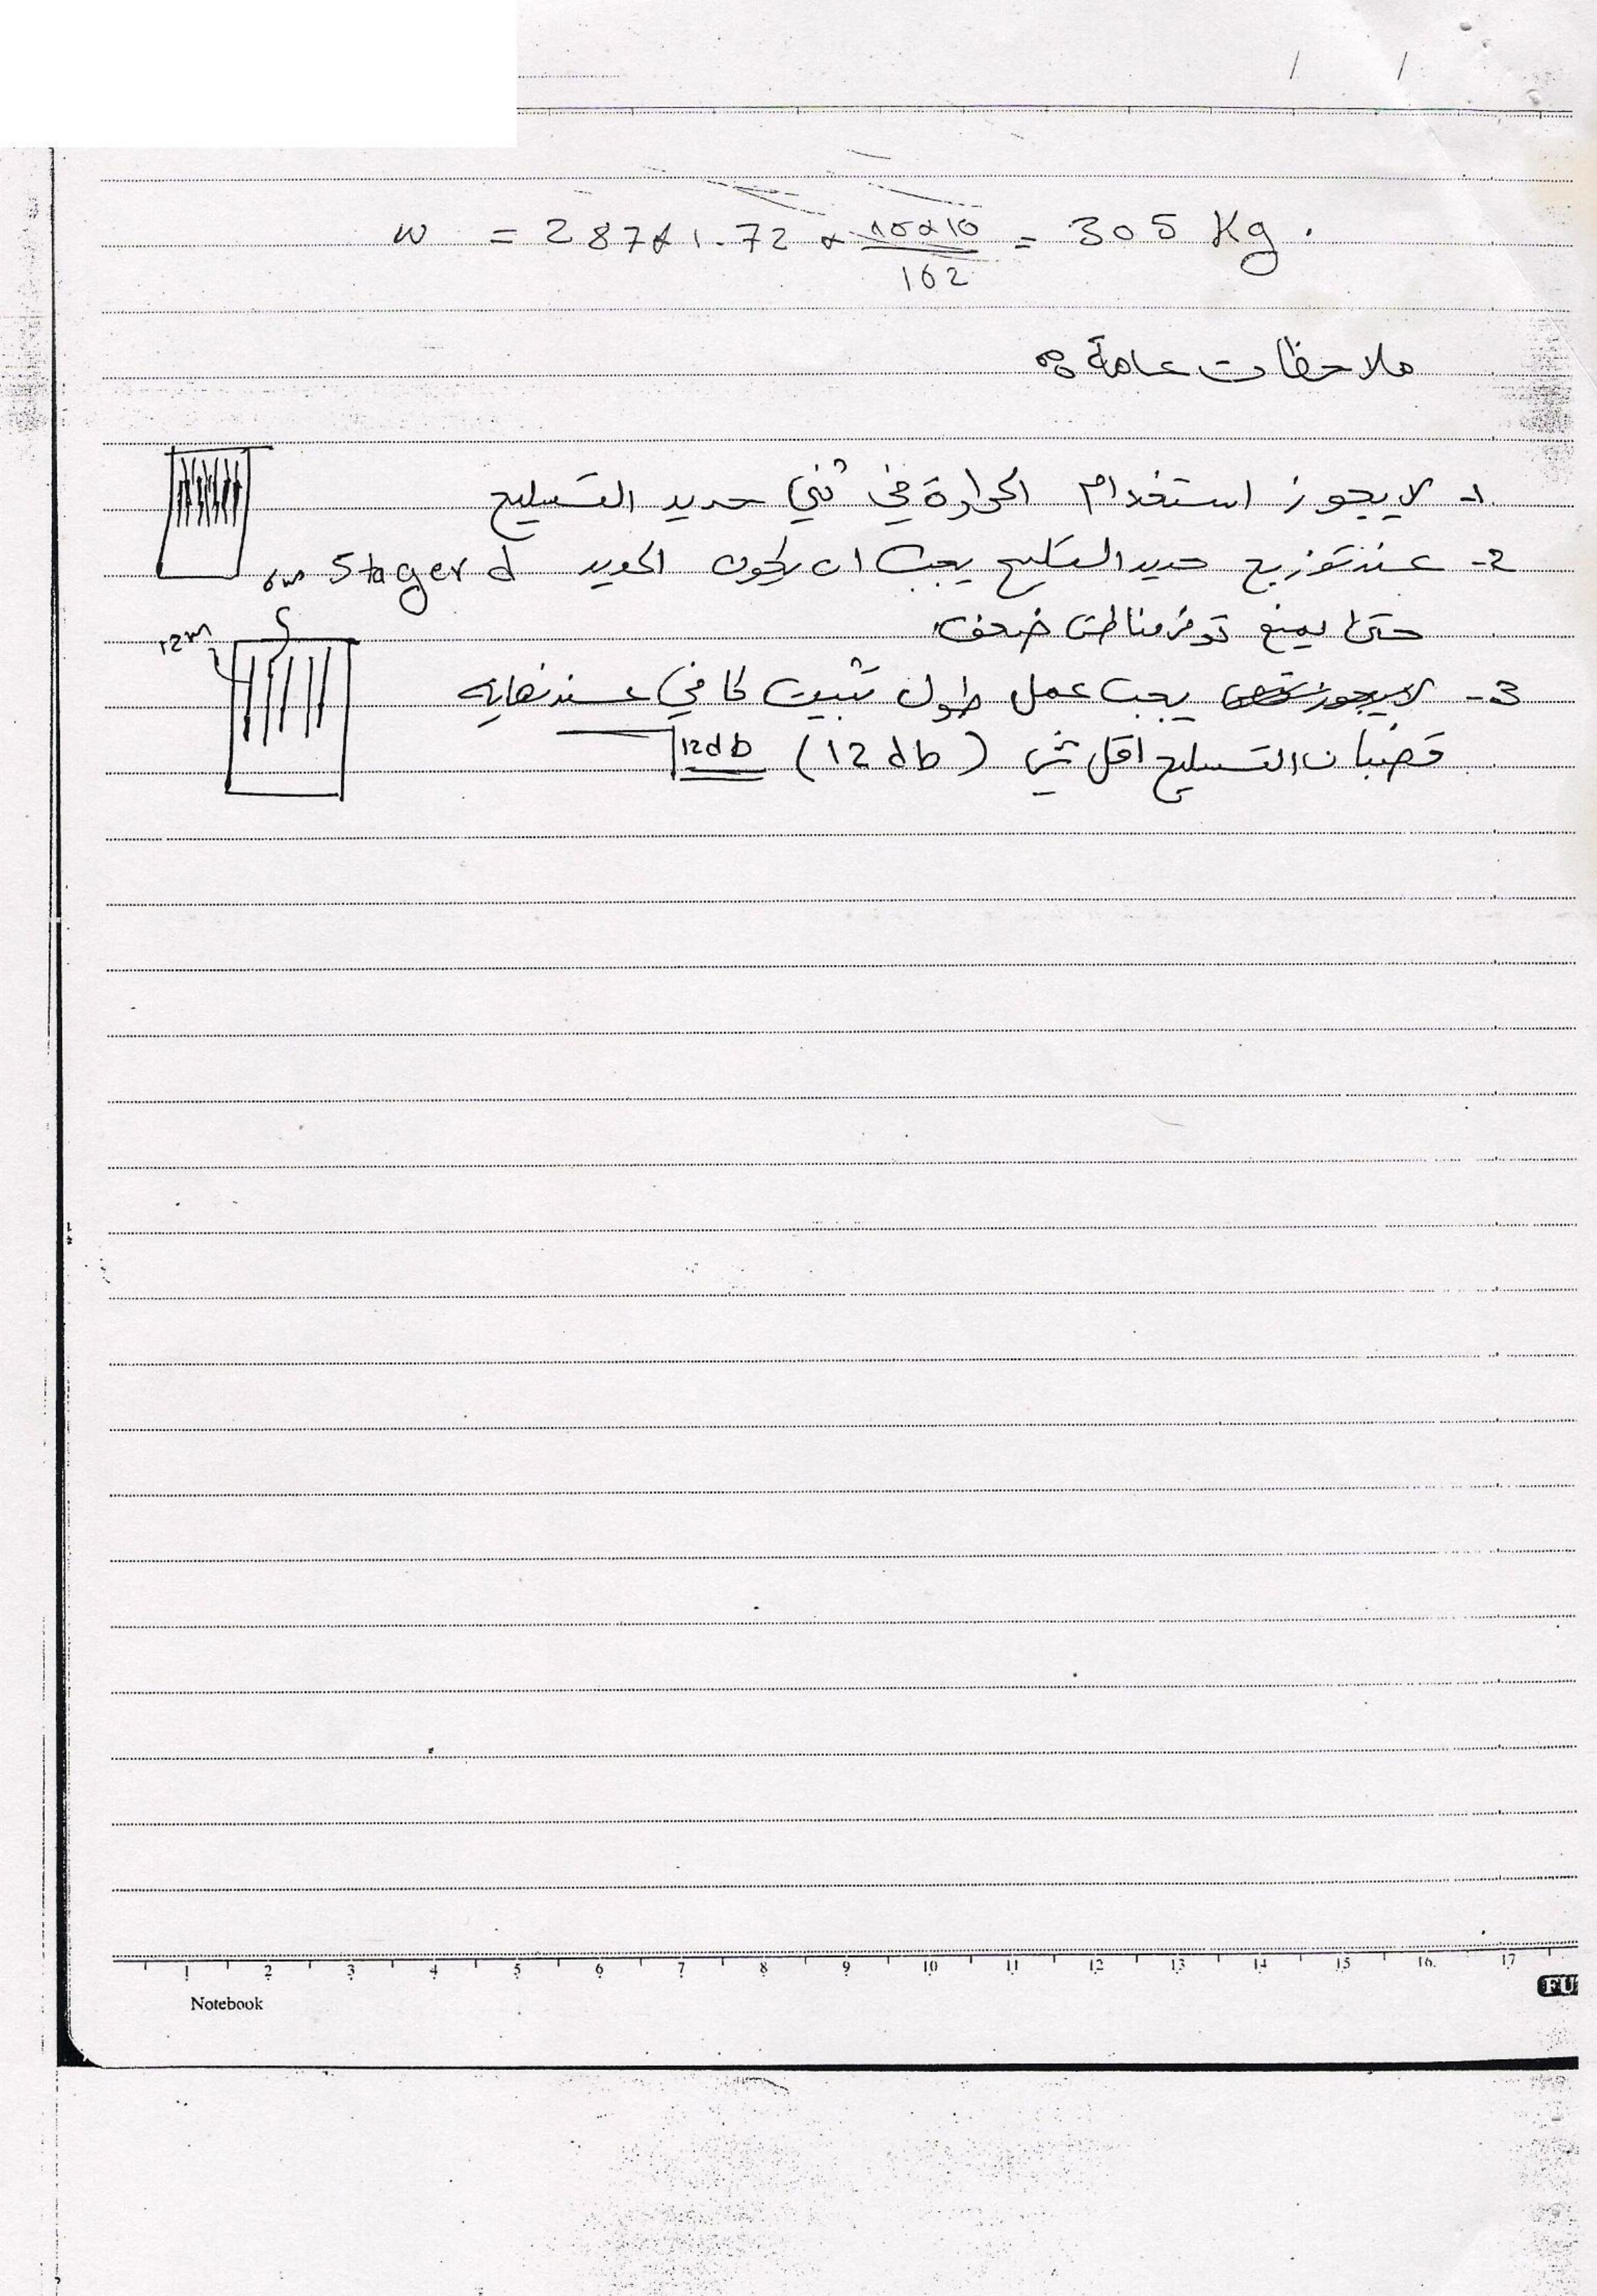 / /
w = 287 x 1.72 x 10x10/162 = 305 Kg.
ملاحظات عامة:
1- لا يجوز استخدام الحرارة في ثني حديد التسليح
2- عند توزيع حديد التسليح يجب ان يكون الحديد Stagerd
حتى يمنع توفر مناطق ضعف
12m
3- يجب عمل طول تثبيت كافي عند نهايه
قضبان التسليح اقل شي (12db) 12db
1 2 3 4 5 6 7 8 9 10 11 12 13 14 15 16 17
Notebook
FU